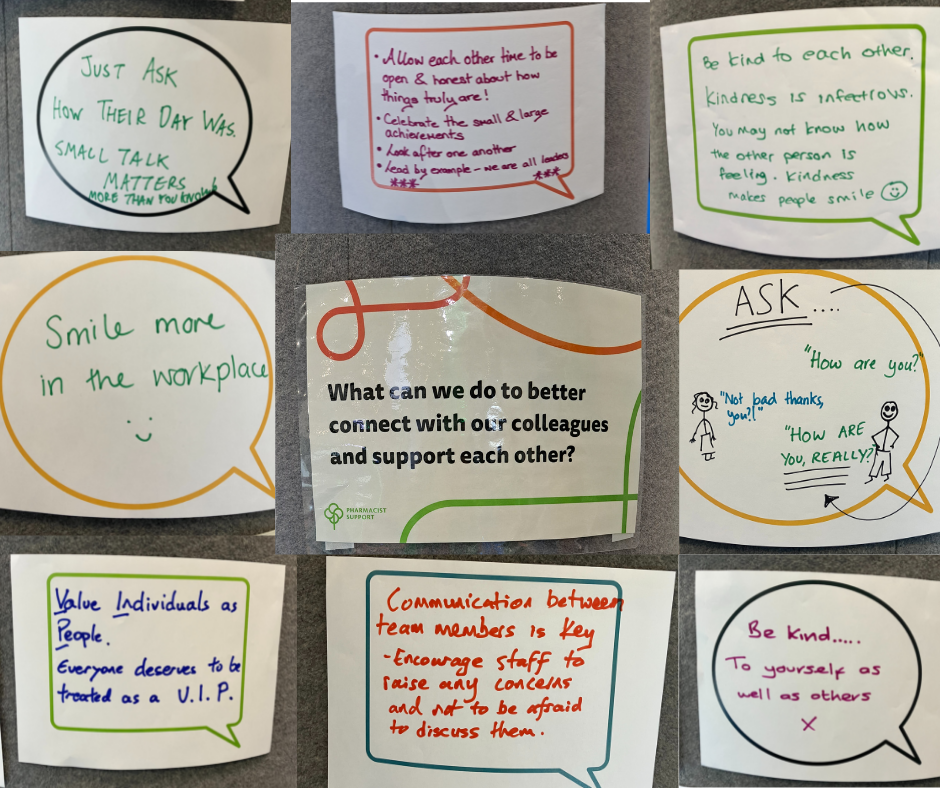 JUST ASK
HOW THEIR DAY WAS.
SMALL TALK
MATTERS
MORE THAN YOU KNOW
• Allow each other time to be
open & honest about how
things truly are!
• Celebrate the small & large
achievements
• Look after one another
• Lead by example - we are all leaders
*** ***
Be kind to each other.
Kindness is infectious.
You may not know how
the other person is
feeling. Kindness
makes people smile ☺
Smile more
in the workplace
:)
What can we do to better
connect with our colleagues
and support each other?
PHARMACIST
SUPPORT
ASK....
"How are you?"
"Not bad thanks,
you?!"
"HOW ARE
YOU, REALLY?"
Value Individuals as
People.
Everyone deserves to be
treated as a V.I.P.
Communication between
team members is key
- Encourage staff to
raise any concerns
and not to be afraid
to discuss them.
Be kind.....
To yourself as
well as others
X